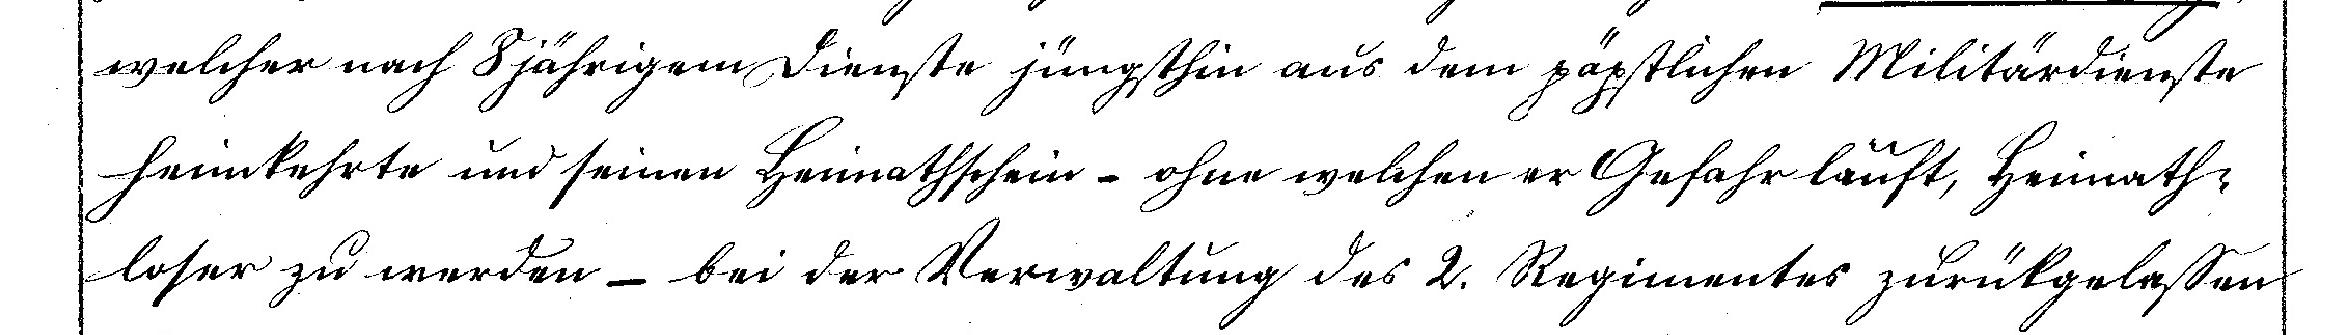 welcher nach 8jährigem Dienste jüngsthin aus dem päpstlichen Militärdienste
heimkehrte und seinen Heimathschein - ohne welchen er Gefahr läuft, Heimath-
loser zu werden - bei der Verwaltung des 2. Regimentes zurükgelassen